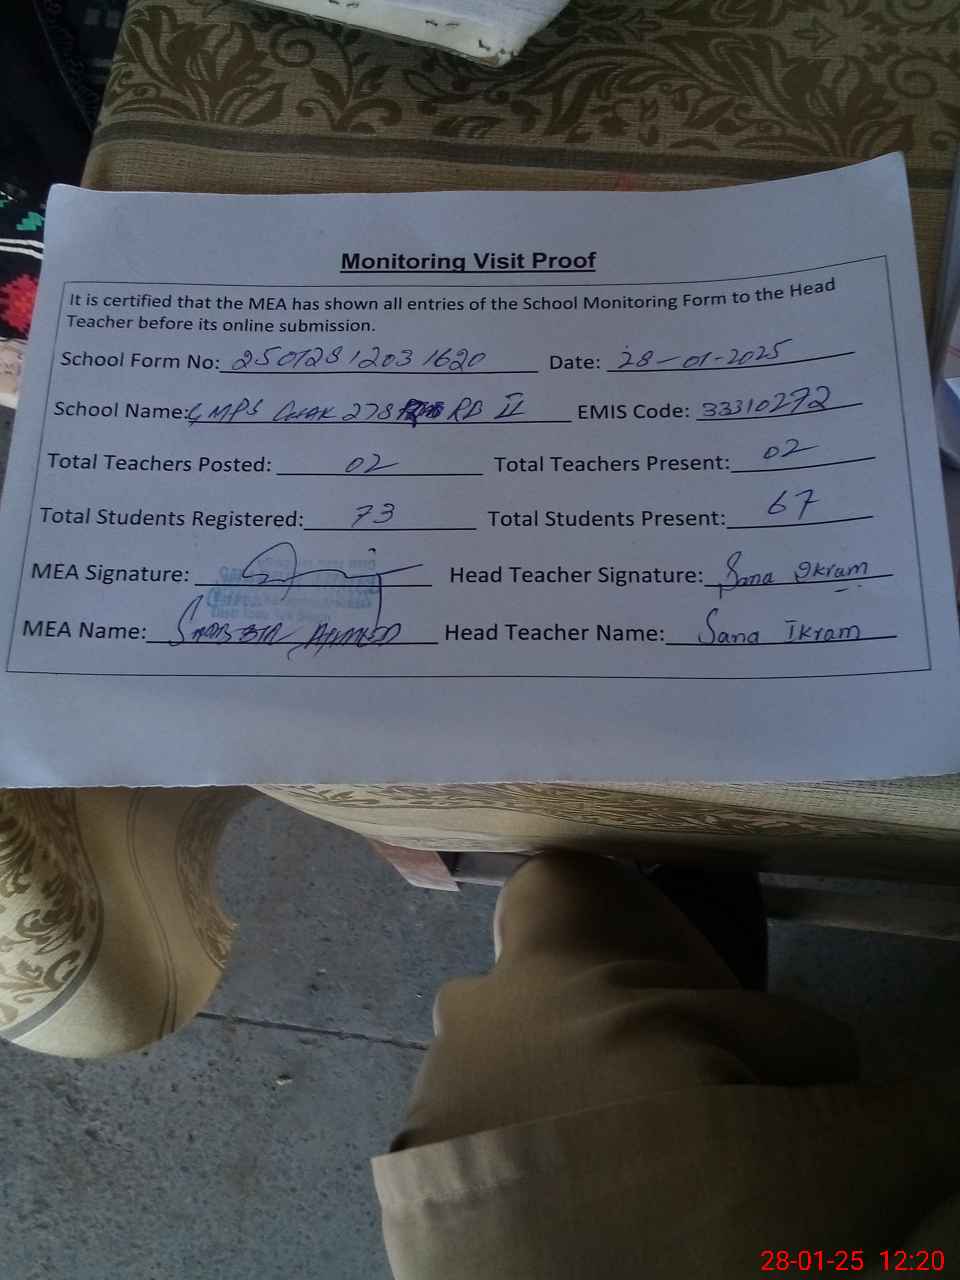 Monitoring Visit Proof
It is certified that the MEA has shown all entries of the School Monitoring Form to the Head
Teacher before its online submission.
School Form No: 25012812031620 Date: 28-01-2025
School Name: GMPS CHAK 278 RB II EMIS Code: 33310272
Total Teachers Posted: 02 Total Teachers Present: 02
Total Students Registered: 73 Total Students Present: 67
MEA Signature: Head Teacher Signature: Sana Ikram
MEA Name: AHMED Head Teacher Name: Sana Ikram
28-01-25 12:20